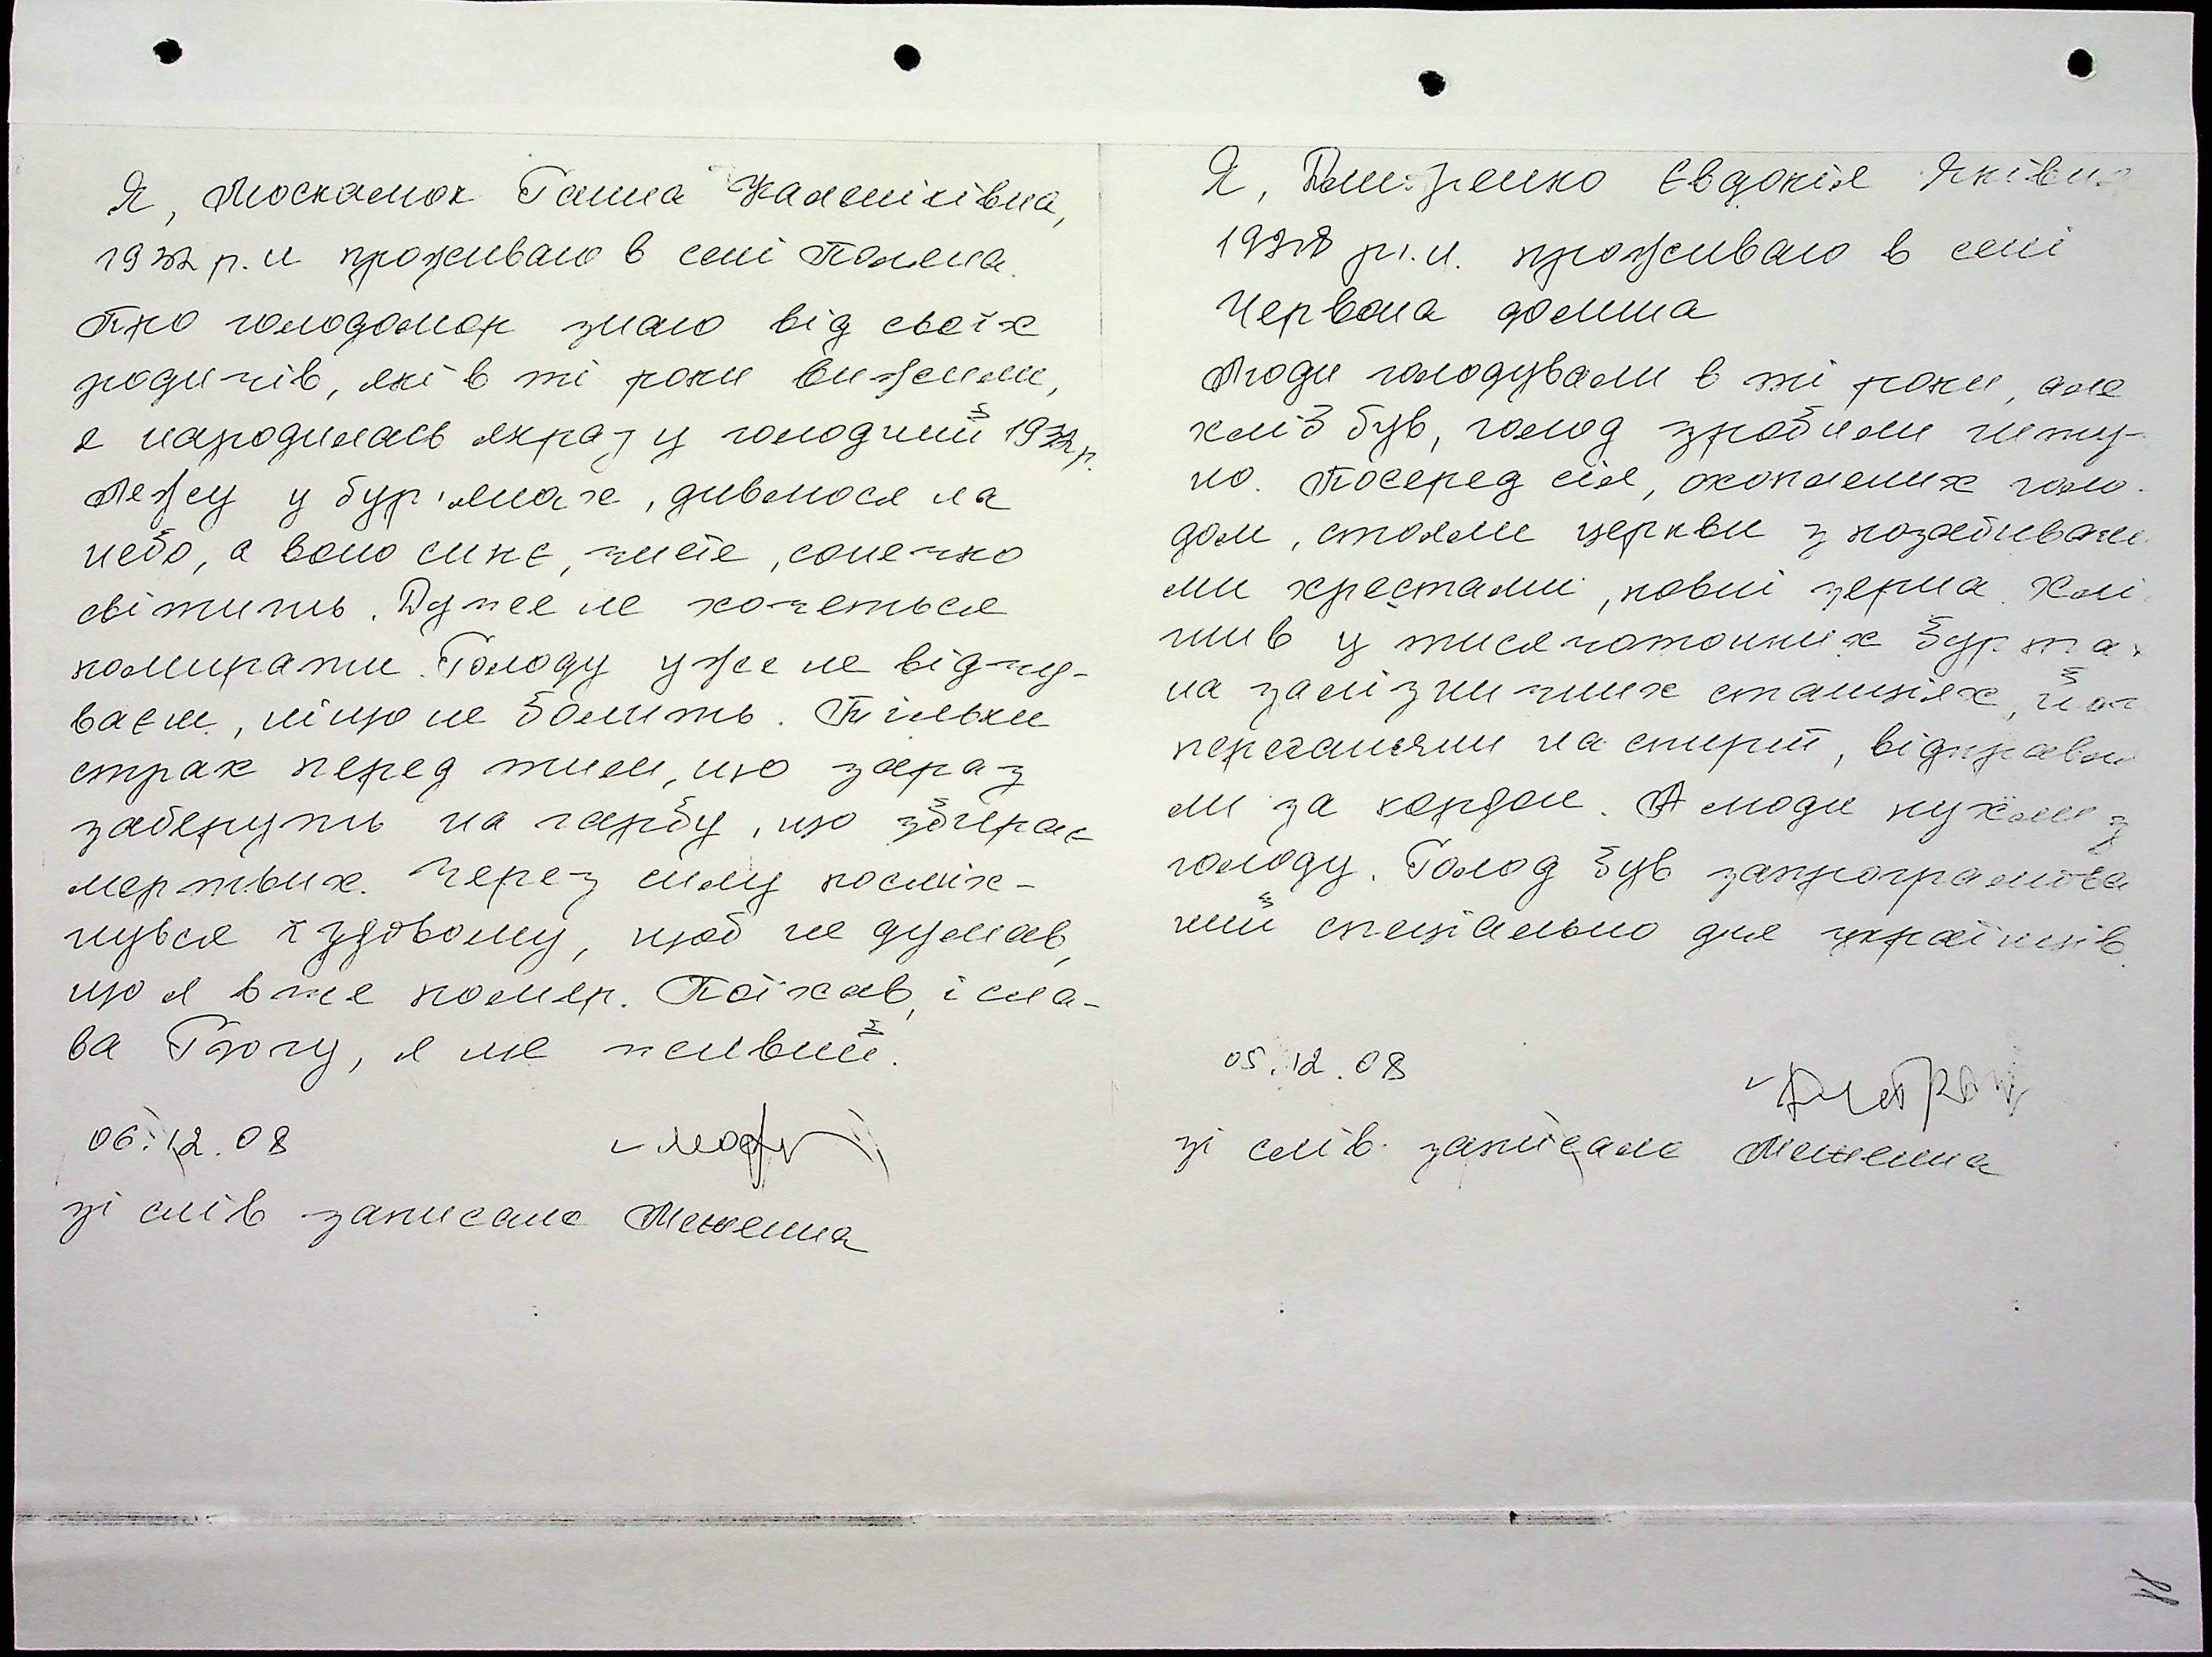 Я, Москалюк Ганна Калениківна,
1932 р.н проживаю в селі Поляна.
Про голодомор знаю від своїх
родичів, які в ті роки вижили,
я народилась якраз у голодний 1932 р.
Лежу у бур'янах, дивлюся на
небо, а воно синє, чисте, сонечко
світить. Дуже не хочеться
помирати. Голоду уже не відчу-
ваєш, ніщо не болить. Тільки
страх перед тим, що зараз
заберуть на гарбу, що збирає
мертвих. Через силу посміх-
нувся їздовому, щоб не думав,
що я вже помер. Поїхав, і сла-
ва Богу, я ще живий.
06.12.08
зі слів записала
Я, Євдокія Яківна
р.н. проживаю в селі
Червона долина
Люди голодували в ті роки, але
хліб був, голод зробили штуч-
но. Посеред сіл, охоплених голо-
дом, стояли церкви з позабивани
ми хрестами, повні зерна. Хліб
гнив у тисячотонних буртах
на залізничних станціях, його
переганяли на спирт, відправля
ли за кордон. А люди пухли з
голоду. Голод був запрограмова
ний спеціально для українців.
05.12.08
зі слів записала